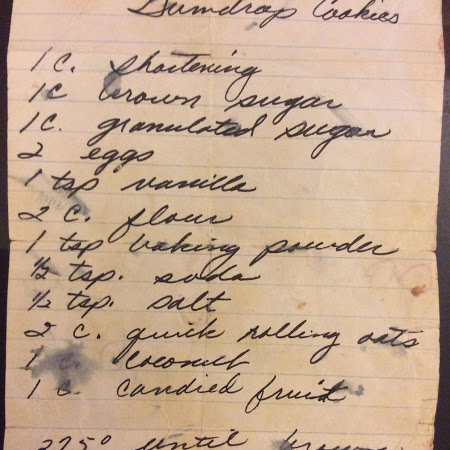 Gumdrop Cookies
1 C. shortening
1C brown sugar
1C. granulated sugar
2 eggs
1 tsp vanilla
2 C. flour
1 tsp baking powder
½ tsp. soda
½ tsp. salt
2 C. quick rolling oats
1 C. coconut
1 C. candied fruit
375° until brown